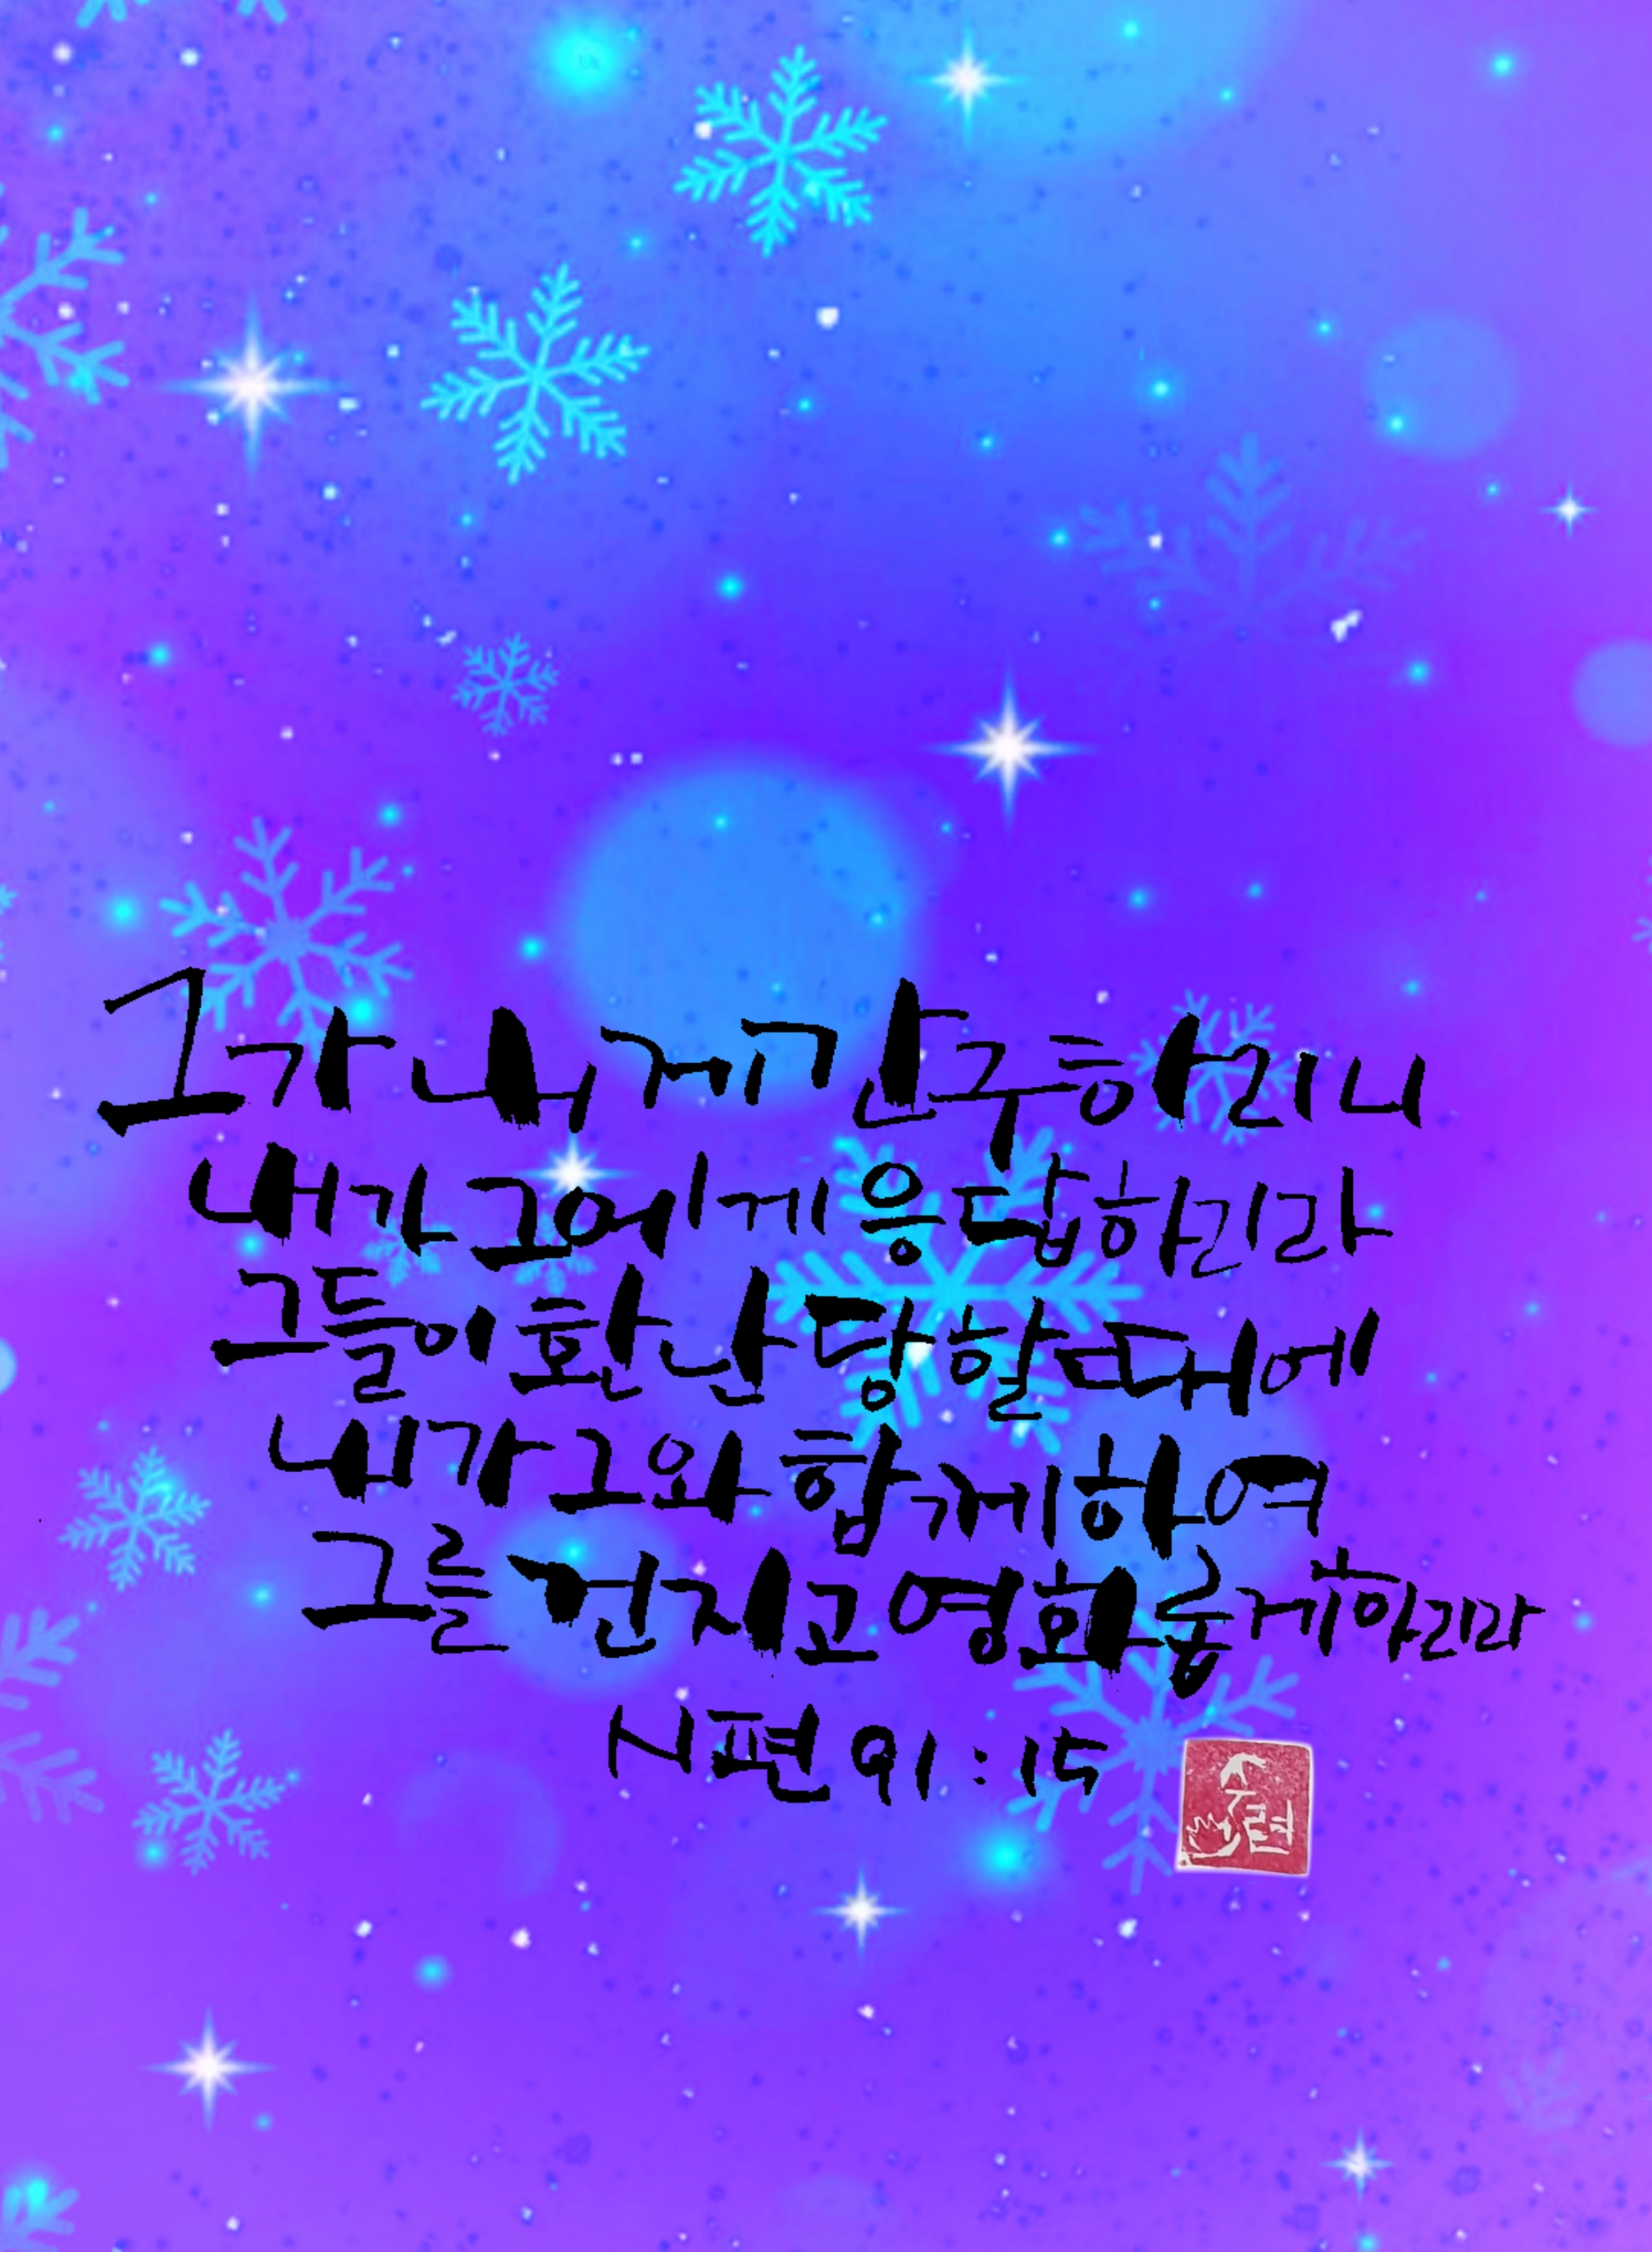 그가 내게 간구하리니
내가 그에게 응답하리라
그들이 환난 당할 때에
내가 그와 함께하여
그를 건지고 영화롭게 하리라
시편 91:15